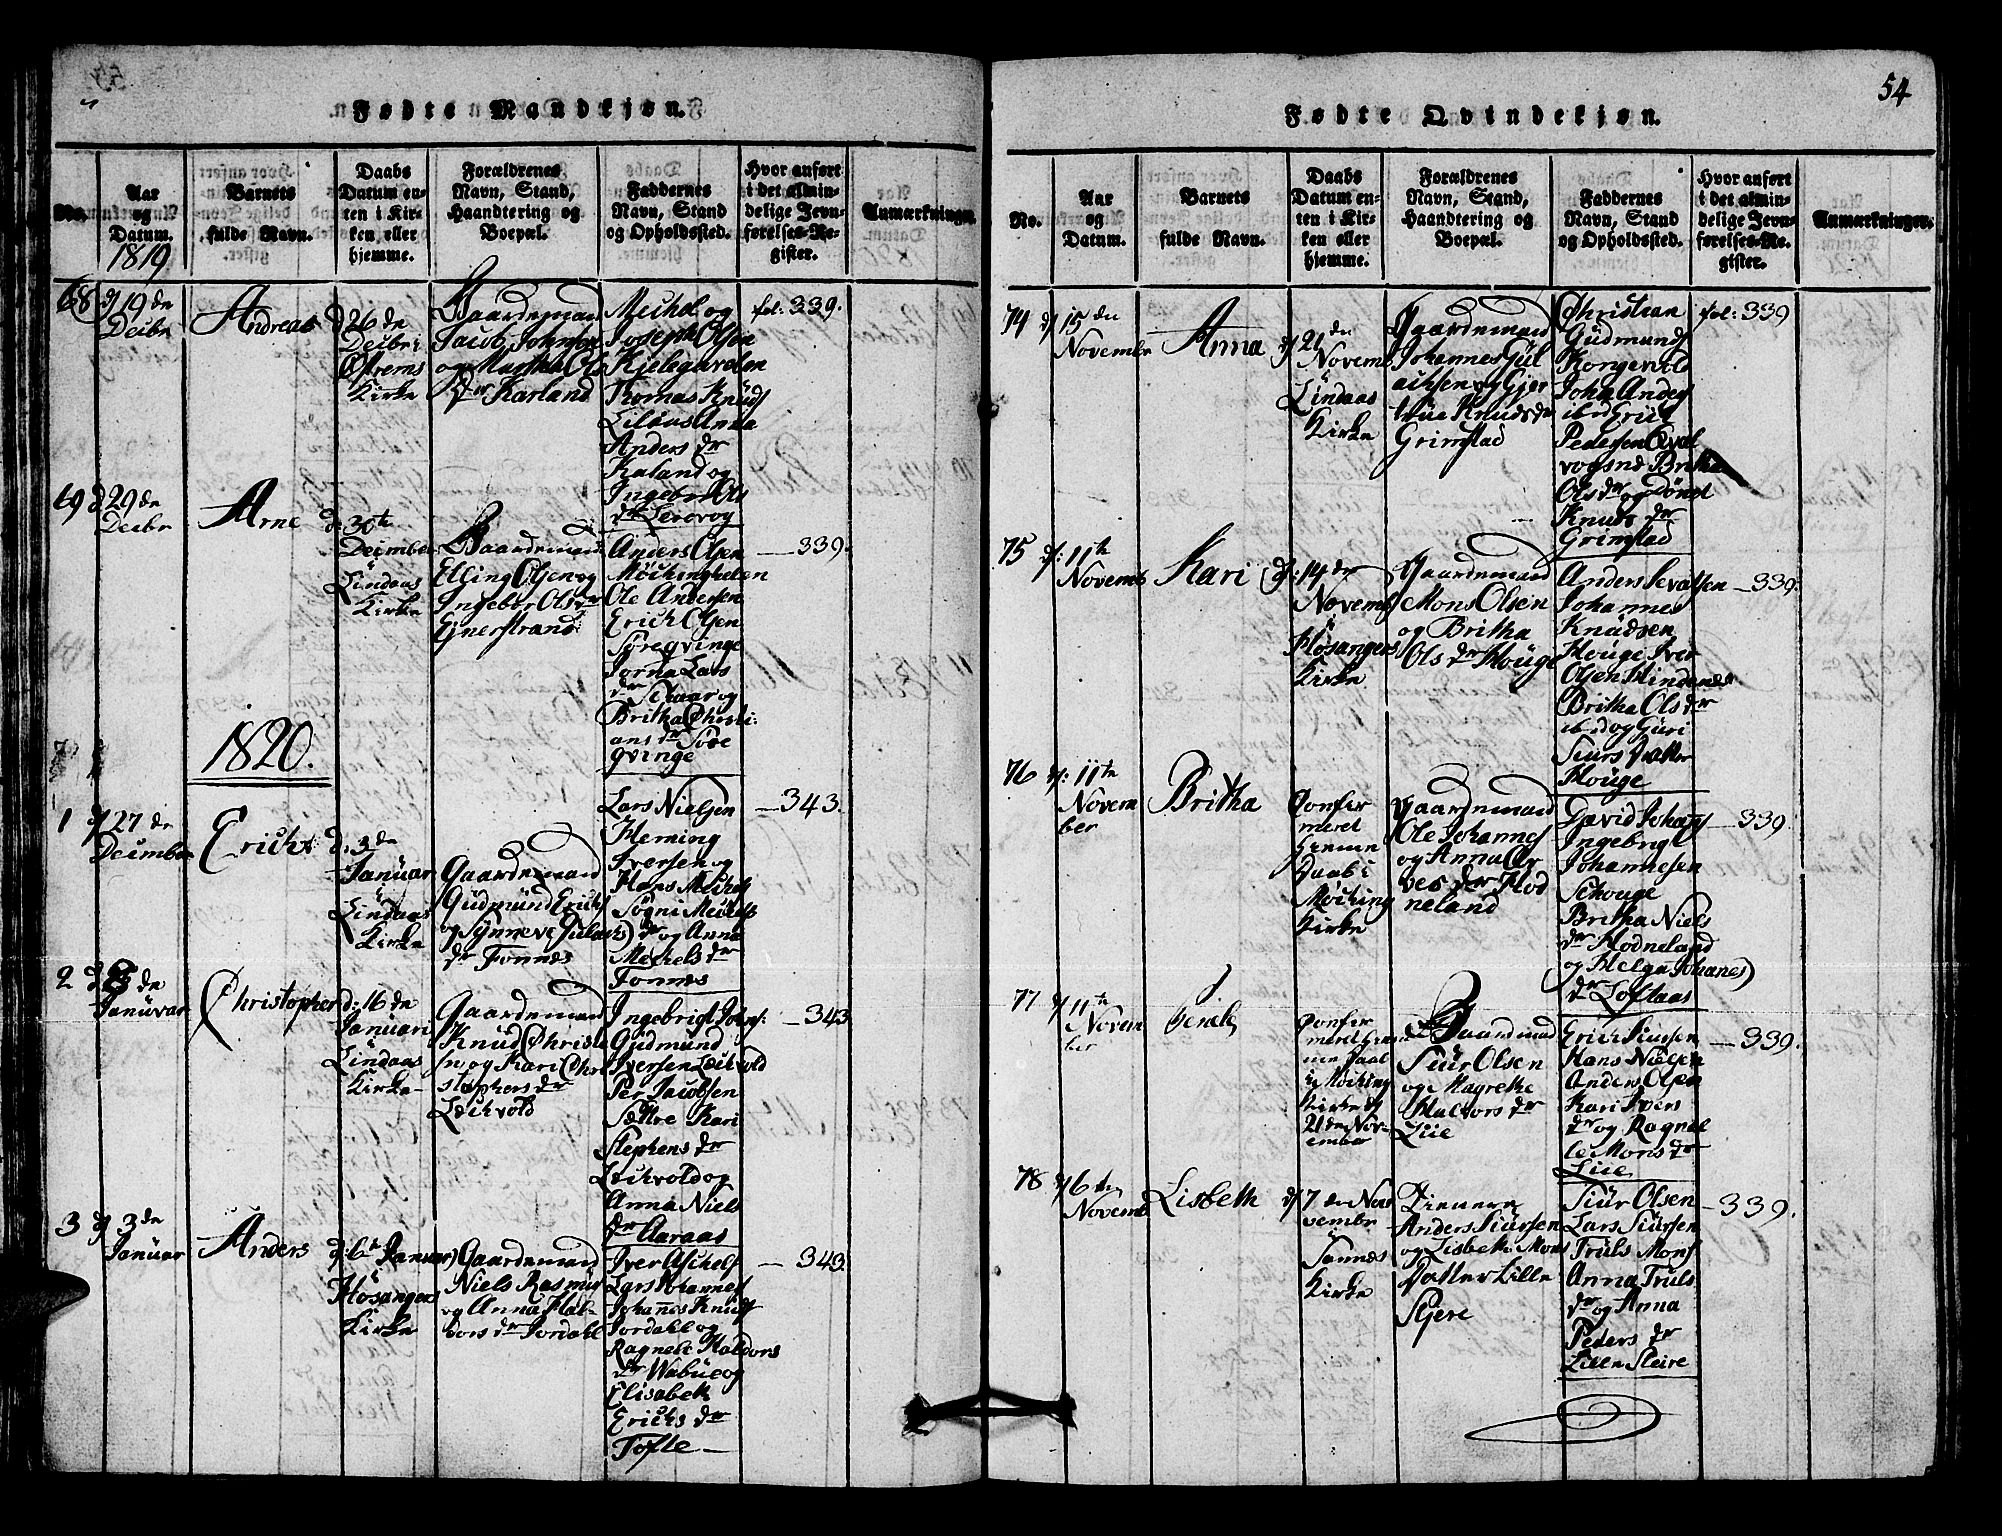 Fødte Mandkjøn.
No.
Aar
og
Datum.
1819
Barnets
fulde Navn.
Daabs
Datum en-
ten i Kir-
ken eller
hjemme.
Forældrenes
Navn, Stand,
Haandtering og
Boepæl.
Faddernes
Navn, Stand
og Opholdssted.
Hvor anført
i det almin-
delige Jevn-
førelses-Re-
gister.
Anmærkninger.
68
d 19 de
Decibr
Andreas
d 26 de
Decibr i
Østrems
Kirke
Gaardemand
Jacob Johnsen
og Martha Ols
dr Karland
Michel og
Joseph Olsen
Kjelegarden
Thomas Knuds
Lilöus Anna
Anders dr
Kaland og
Ingebor Ols
dr Lerovog
fol: 339.
69
d 29 de
Decibr
Arne
d: 30te
Decimber
i Lindaas
Kirke
Gaardemand
Elling Olsen og
Ingebor Ols dr
Ejnerstrand
Anders Olsen
Möckinghelen
Ole Andersen
Erich Olsen
Söreqvinge
Jorna Lars
dr Schaar og
Britha Christi:
ans dr Söre
qvinge
339.
1820.
1
d 27 de
Decimber
Erich
d: 3 de
Januar
i Lindaas
Kirke
Gaardemand
Gudmund Erichs
og Synneve Gulachs
dr Fonnes
Lars Nielsen
Heming
Iversen og
Hans Michels
Sögni Michels
dr og Anna
Michels dr
Fonnes
343.
2
de
Januvar
Christopher
d: 16 de
Januari
Lindaas
Kirke
Gaardemand
Knud Christs
sn og Kari Chri
stophers dr
Leckvold
Ingebrigt Johns:
Gudmund
Iversen Leckvold
Per Jacobsen
Sættre Kari
Stephens dr
Leckvold og
Anna Niels
dr Aaraas
343
3
d 3 de
Januar
Anders
d: 6te Januar
Hosangers
Kirke
Gaardemand
Niels Rasmus
og Anna Hal-
vors dr Jordahl
Iver Aschels
Lars Johannes
Johannes Knuds
Jordahl og
Ragnele Haldors
dr Wabüe og
Elisabeth
Erichs dr
Tofte
343.
54
Fødte Qvindekjøn.
No.
Aar
og
Datum.
Barnets
fulde Navn.
Daabs
Datum en-
ten i Kir-
ken eller
hjemme.
Forældrenes
Navn, Stand,
Haandtering og
Boepæl.
Faddernes
Navn, Stand
og Opholdssted.
Hvor anført
i det almin-
delige Jevn-
førelses-Re-
gister.
Anmærkninger.
74
d 15 den
Novembr
Anna
d 21 de
Novemb
Lindaas
Kirke
Gaardemand
Johannes Gul
achsen og Gjer
trüe Knuds dr
Grimstad
Christian
Gudmunds
Kongevild
John Anders
ibid Erich
Pedersen Qval
vogsne Britha
Ols dr og Dönot
Knuds dr
Grimstad
fol: 339
75
d: 11te
Novemb
Kari
d: 14 der
Novemb
i Hosangers
Kirke
Gaardemand
Mons Olsen
og Britha
Ols dr Houge
Anders Sevatsen
Johannes
Knudsen
Houge Iver
Olsen Hindenes
Britha Ols dr
ibid og Guri
Siurs Datter
Houge
339.
76
d: 11te
Novem
ber
Britha
Confir
meret
hiemme
Daab i
Möcking
Kirke
Gaardemand
Ole Johannes
og Anna Or
ves dr Hod
neland
David Johans
Ingebrigt
Johannesen
Schouge
Britha Niels
dr Hodneland
og Helga Johanes
dr Loftaas
339
77
d 11te
Novem
ber
Confir
meret hiem
me Daab
i Möcking
Kirke d
21 de Nov-
ember
Gaardmand
Siur Olsen
og Magrethe
Halvors dr
Liie
Erich Siursen
Hans Nielsen
Anders Olsen
Kari Ivers
dr og Ragnel
le Mons dr
Liie
339.
78
d 6 te
Novemb
Lisbeth
d 7 de No
vembr
Sannæs
Kirke
Anders Siursen
og Lisbeth Mons
Datter Lille
Skjere
Siur Olsen
Lars Siursen
Truls Mons
Anna Truls
dr og Anna
Peders dr
Lille Skeire
339.